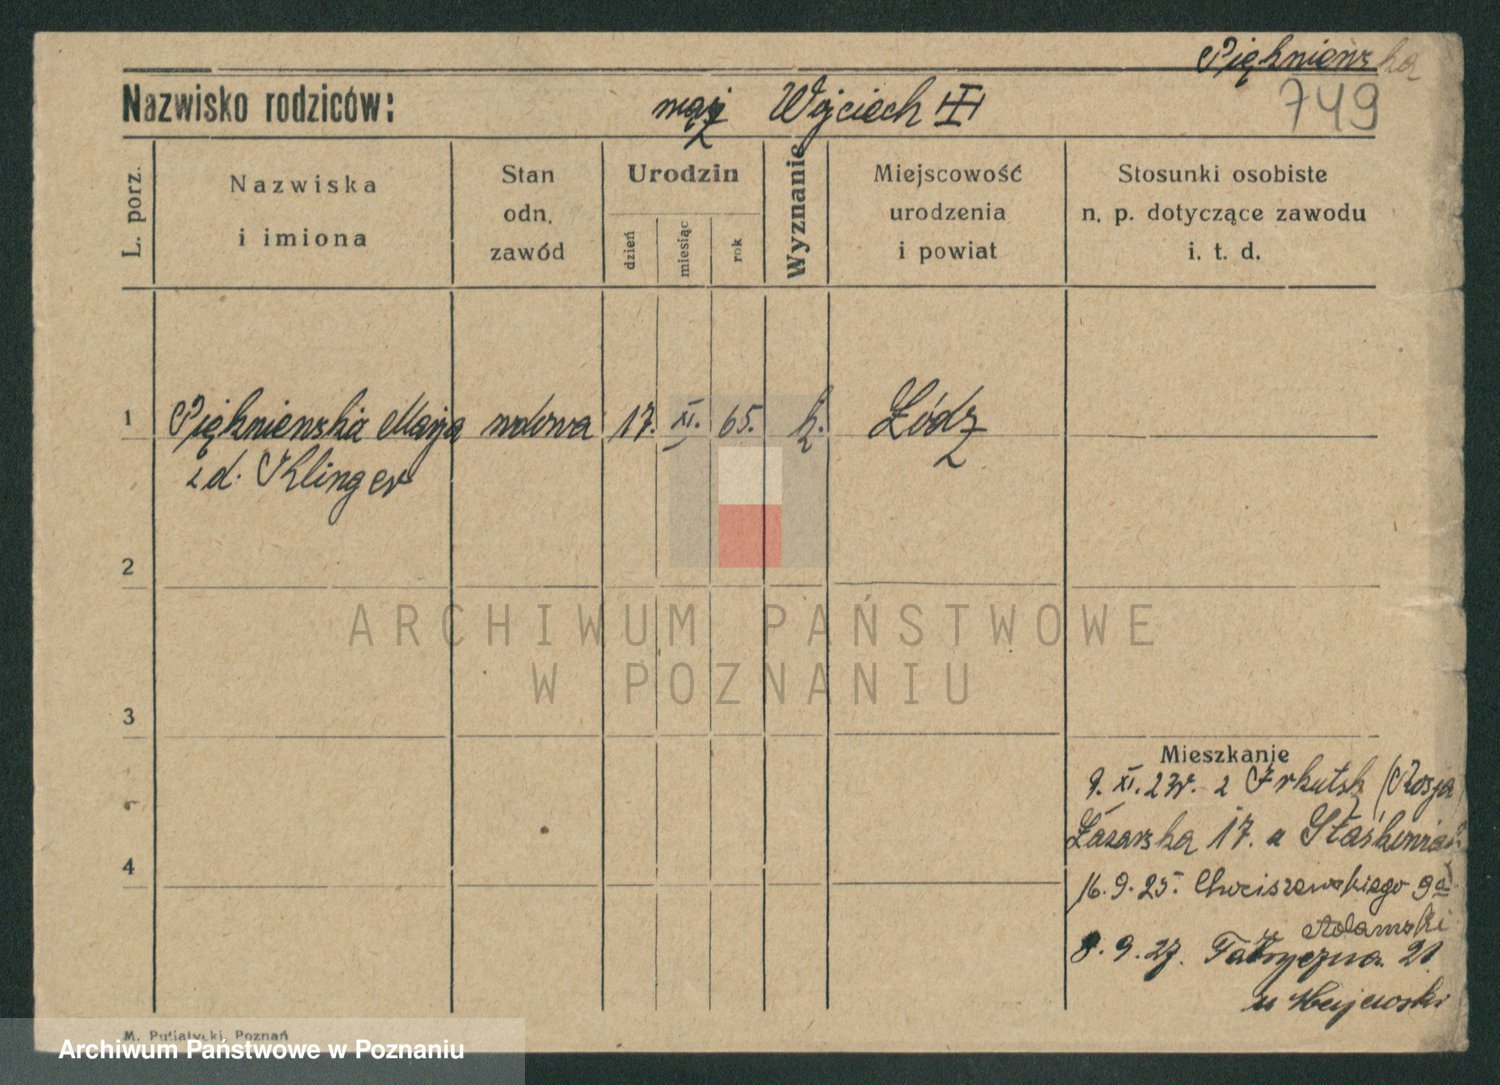 Piękniewska
749
Nazwisko rodziców: mąż Wojciech
L. porz.
Nazwiska
i imiona
Stan
odn.
zawód
Urodzin
dzień
miesiąc
rok
Wyznanie
Miejscowość
urodzenia
i powiat
Stosunki osobiste
n. p. dotyczące zawodu
i. t. d.
1 Piękniewska Marja wdowa 17. XI. 65. k. Łódź
z d. Klinger
2
ARCHIWUM PAŃSTWOWE
W POZNANIU
3
Mieszkanie
9. XI. 23r. z Irkutsk (Rosja
Łazarska 17. u
4
16. 9. 25. Chociszewskiego 9a
Adamski
8. 9. 27. Fabryczna 21
u Majewski
M. Putiatycki, Poznań
Archiwum Państwowe w Poznaniu